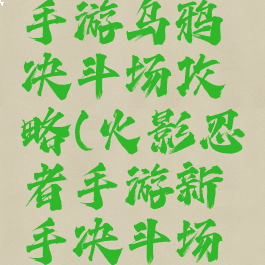 手游乌鸦
决斗场攻
略(火影忍
者手游新
手决斗场